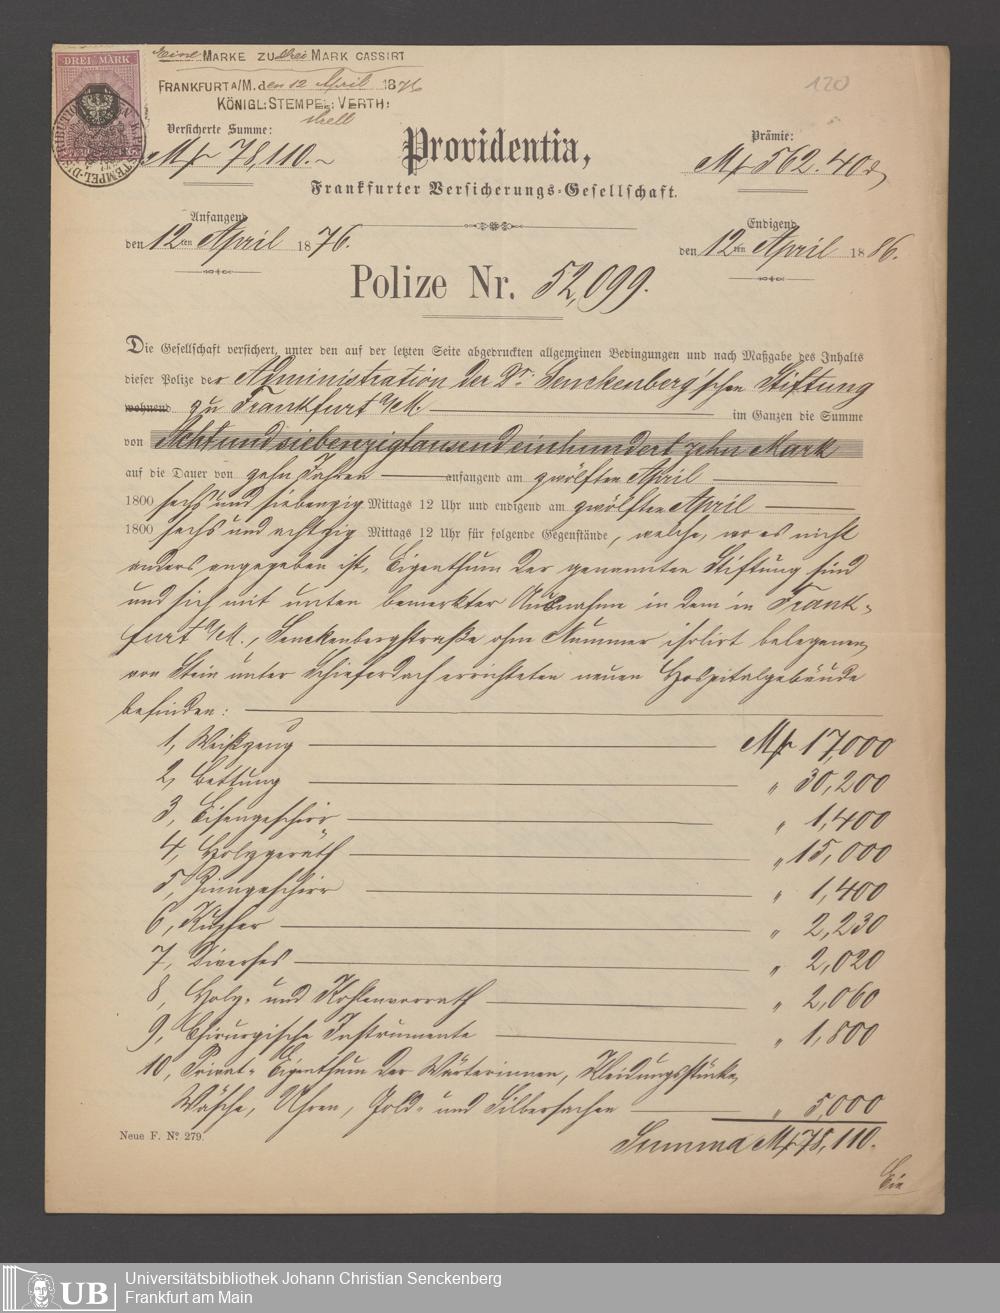 DREI MARK
Eine MARKE ZU drei MARK CASSIRT
FRANKFURT A/M. den 12 April 1876
KÖNIGL: STEMPEL: VERTH:
120
Versicherte Summe:
Mk 78,110.~
Providentia,
Frankfurter Versicherungs-Gesellschaft.
Prämie:
Mk 562.40 d
Anfangend
den 12ten April 1876.
Endigend
den 12ten April 1886.
Polize Nr. 52,099.
Die Gesellschaft versichert, unter den auf der letzten Seite abgedruckten allgemeinen Bedingungen und nach Maßgabe des Inhalts
dieser Polize der Administration der Dr. Senckenberg'schen Stiftung
wohnend zu Frankfurt a/M. im Ganzen die Summe
von Achtundsiebenzigtausendeinhundert zehn Mark
auf die Dauer von zehn Jahren anfangend am zwölften April
1800 sechs und siebenzig Mittags 12 Uhr und endigend am zwölften April
1800 sechs und achtzig Mittags 12 Uhr für folgende Gegenstände, welche, wo es nicht
anders angegeben ist, Eigenthum der genannten Stiftung sind
und sich mit unten bemerkter Ausnahme in dem in Frank-
furt a/M., Senckenbergstraße ohne Nummer isolirt belegenen,
von Stein unter Schieferdach errichteten neuen Hospitalgebäude
befinden:
1, Weißzeug Mk 17,000
2, Bettung " 30,200
3, Eisengeschirr " 1,400
4, Holzgeräth " 15,000
5, Zinngeschirr " 1,400
6, Kupfer " 2,230
7, Diverses " 2,020
8, Holz- und Kohlenvorrath " 2,060
9, Chirurgische Instrumente " 1,800
10, Privat-Eigenthum der Wärterinnen, Kleidungsstücke,
Wäsche, Uhren, Gold- und Silbersachen " 5,000
Neue F. No. 279.
Summa Mk 78,110.
Die
UB
Universitätsbibliothek Johann Christian Senckenberg
Frankfurt am Main